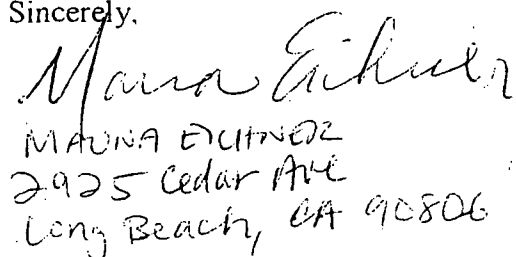 Sincerely,
Mauna Eichner
MAUNA EICHNER
2925 Cedar Ave
Long Beach, CA 90806